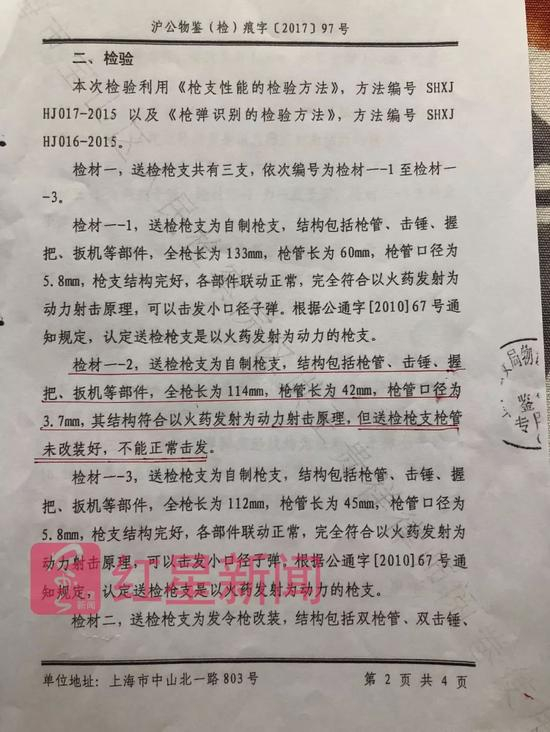 沪公物鉴（检）痕字〔2017〕97号
二、检验
本次检验利用《枪支性能的检验方法》，方法编号 SHXJ
HJ017-2015 以及《枪弹识别的检验方法》，方法编号 SHXJ
HJ016-2015。
检材一，送检枪支共有三支，依次编号为检材一-1至检材一
-3。
检材一-1，送检枪支为自制枪支，结构包括枪管、击锤、握
把、扳机等部件，全枪长为133mm，枪管长为60mm，枪管口径为
5.8mm，枪支结构完好，各部件联动正常，完全符合以火药发射为
动力射击原理，可以击发小口径子弹。根据公通字[2010]67号通
知规定，认定送检枪支是以火药发射为动力的枪支。
检材一-2，送检枪支为自制枪支，结构包括枪管、击锤、握
把、扳机等部件，全枪长为114mm，枪管长为42mm，枪管口径为
3.7mm，其结构符合以火药发射为动力射击原理，但送检枪支枪管
未改装好，不能正常击发。
检材一-3，送检枪支为自制枪支，结构包括枪管、击锤、握
把、扳机等部件，全枪长为112mm，枪管长为45mm，枪管口径为
5.8mm，枪支结构完好，各部件联动正常，完全符合以火药发射为
动力射击原理，可以击发小口径子弹。根据公通字[2010]67号通
知规定，认定送检枪支是以火药发射为动力的枪支。
红星新闻
新闻
检材二，送检枪支为发令枪改装，结构包括双枪管、双击锤、
单位地址：上海市中山北一路803号
第 2 页 共 4 页
局物
鉴
专用